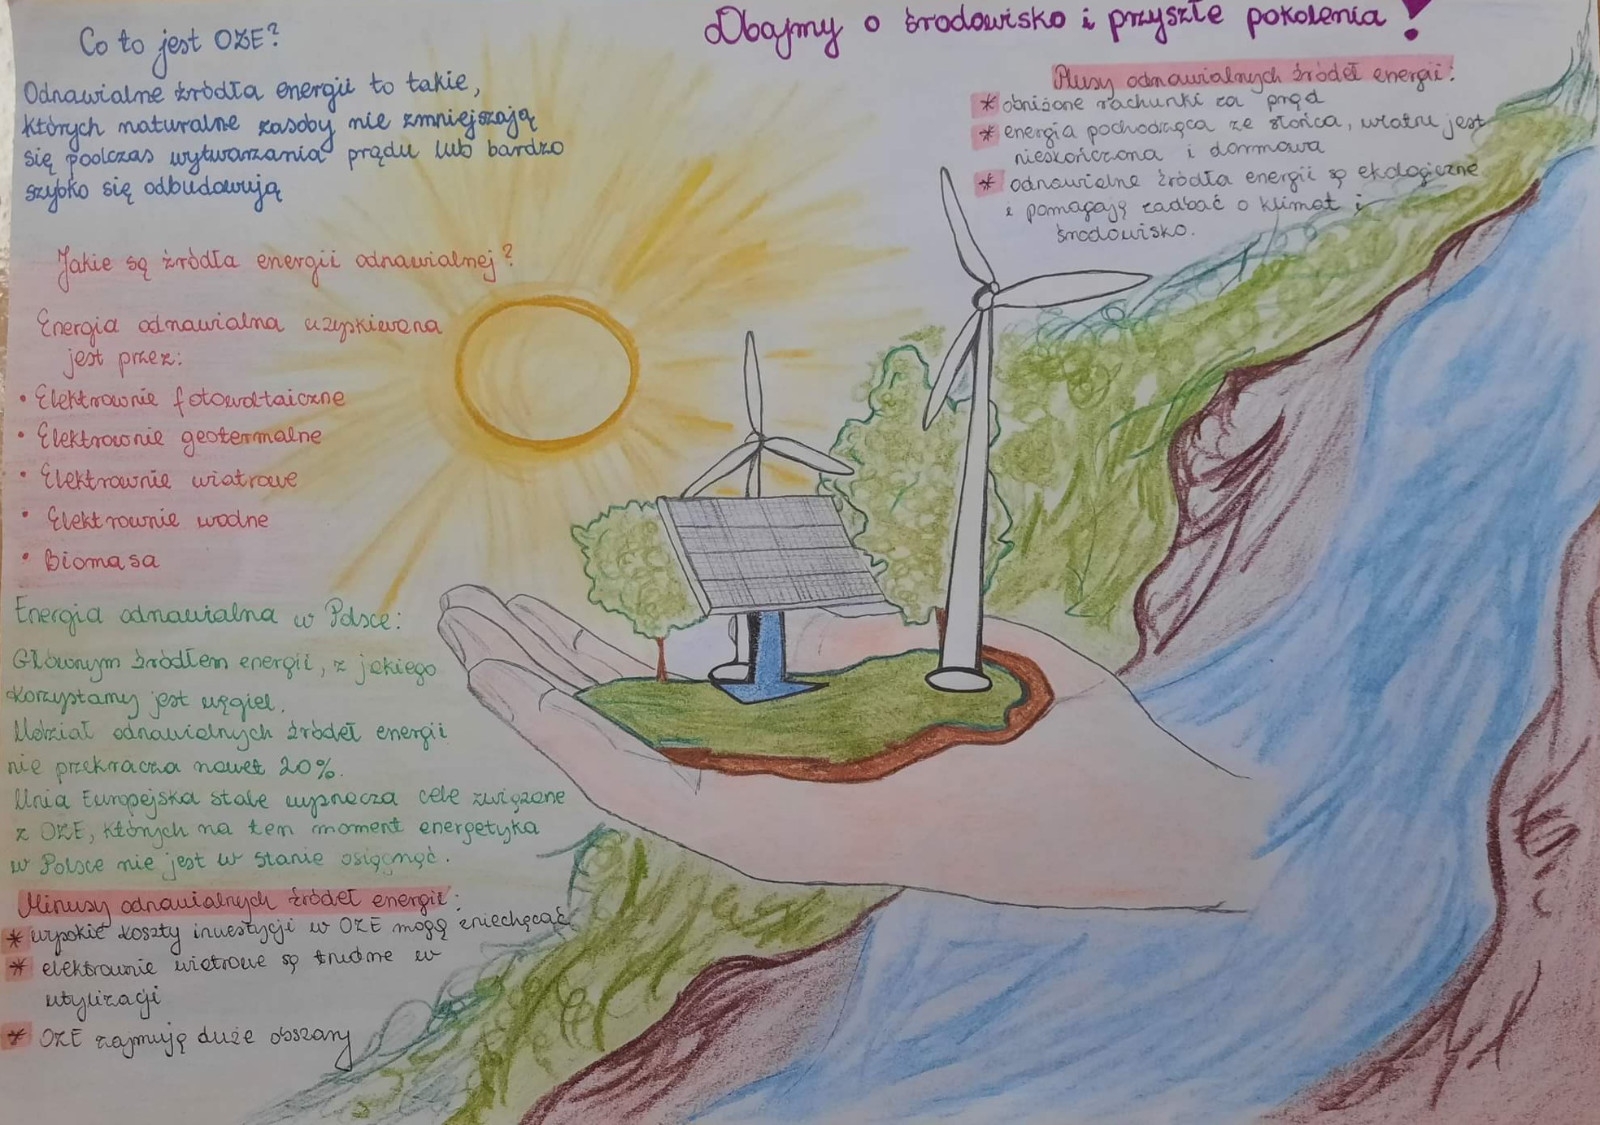 Dbajmy o środowisko i przyszłe pokolenia!
Co to jest OZE?
Odnawialne źródła energii to takie,
których naturalne zasoby nie zmniejszają
się podczas wytwarzania prądu lub bardzo
szybko się odbudowują
Jakie są źródła energii odnawialnej?
Energia odnawialna uzyskiwana
jest przez:
• Elektrownie fotowoltaiczne
• Elektrownie geotermalne
• Elektrownie wiatrowe
• Elektrownie wodne
• Biomasa
Energia odnawialna w Polsce:
Głównym źródłem energii, z jakiego
korzystamy jest węgiel.
Udział odnawialnych źródeł energii
nie przekracza nawet 20%.
Unia Europejska stale wyznacza cele związane
z OZE, których na ten moment energetyka
w Polsce nie jest w stanie osiągnąć.
Minusy odnawialnych źródeł energii:
* wysokie koszty inwestycji w OZE mogą zniechęcać
* elektrownie wiatrowe są trudne w
utylizacji
* OZE zajmują duże obszary
Plusy odnawialnych źródeł energii:
* obniżone rachunki za prąd
* energia pochodząca ze słońca, wiatru jest
nieskończona i darmowa
* odnawialne źródła energii są ekologiczne
i pomagają zadbać o klimat i
środowisko.